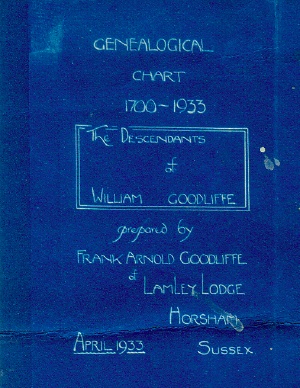 GENEALOGICAL
CHART
1700-1933
The DESCENDANTS
of
WILLIAM GOODLIFFE
prepared by
FRANK ARNOLD GOODLIFFE
of LAMLEY LODGE
HORSHAM
APRIL 1933 SUSSEX